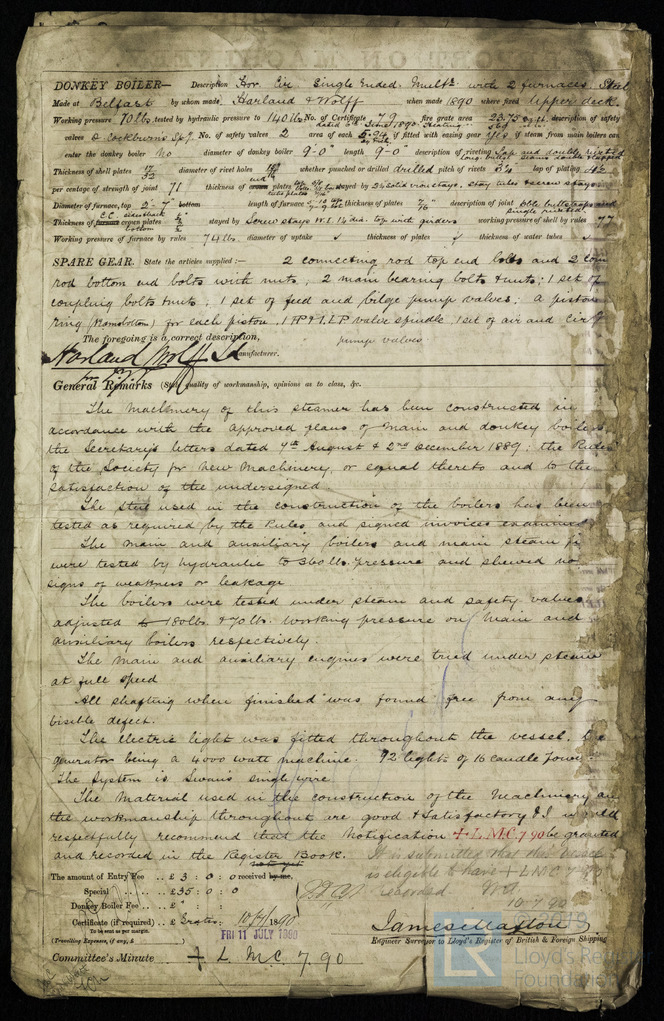 DONKEY BOILER— Description Hor. Cir. Single Ended. Mult. with 2 furnaces. Steel
Made at Belfast by whom made Harland & Wolff when made 1890 where fixed Upper deck.
Working pressure 70 lb. tested by hydraulic pressure to 140 lb. No. of Certificate 79 fire grate area 23.75 sq. ft. description of safety
valves D. Cockburn's Spg. No. of safety valves 2 area of each 5.94 if fitted with easing gear yes if steam from main boilers can
enter the donkey boiler No diameter of donkey boiler 9-0" length 9-0" description of riveting Lap and double riveted
Thickness of shell plates diameter of rivet holes whether punched or drilled drilled pitch of rivets lap of plating
per centage of strength of joint 71 thickness of plates stayed by
Diameter of furnace, top 2'-7" bottom length of furnace thickness of plates description of joint
Thickness of plates stayed by Screw stays W.I. 1 1/4 dia. top with girders working pressure of shell by rules
Working pressure of furnace by rules 74 lb. diameter of uptake thickness of plates thickness of water tubes
SPARE GEAR. State the articles supplied:— 2 connecting rod top end bolts and 2 con
rod bottom end bolts with nuts, 2 main bearing bolts & nuts: 1 set of
coupling bolts & nuts. 1 set of feed and bilge pump valves; a piston
ring (Ramsbottom) for each piston. 1 HP & 1 LP valve spindle, 1 set of air and Cirg
pump valves
The foregoing is a correct description,
Harland & Wolff Ld Manufacturer.
General Remarks (State quality of workmanship, opinions as to class, &c.
The Machinery of this steamer has been constructed in
accordance with the approved plans of Main and donkey boilers
the Secretary's letters dated 7th August & 2nd December 1889: the Rules
of the Society for New Machinery, or equal thereto and to the
satisfaction of the undersigned
The Steel used in the construction of the boilers has been
tested as required by the Rules and signed invoices examined
The Main and auxiliary boilers and main steam
were tested by hydraulic to 360 lb. pressure and shewed no
signs of weakness or leakage
The boilers were tested under steam and safety valves
adjusted to 180 lb. & 70 lb. working pressure on Main and
auxiliary boilers respectively.
The Main and auxiliary engines were tried under steam
at full speed
All shafting when finished was found free from any
visible defect.
The electric light was fitted throughout the vessel, the
generator being a 4000 watt machine. 92 lights of 16 candle Power.
The System is Swan's single wire
The Material used in the construction of the Machinery and
the workmanship throughout are good & Satisfactory & I would
respectfully recommend that the Notification + L.M.C. 7 90 be granted
and recorded in the Register Book.
It is submitted that this vessel
is eligible to have + LMC 7 90
recorded.
10.7.90
The amount of Entry Fee .. £ 3 : 0 : 0 received by me,
Special .. £ 35 : 0 : 0
Donkey Boiler Fee .. £
Certificate (if required) .. £ Gratis: 10/7/1890
To be sent as per margin.
(Travelling Expenses, if any, £ )
FRI 11 JULY 1890
Engineer Surveyor to Lloyd's Register of British & Foreign Shipping
Committee's Minute + L M C 7.90
© 2019
LR
Lloyd's Register
Foundation